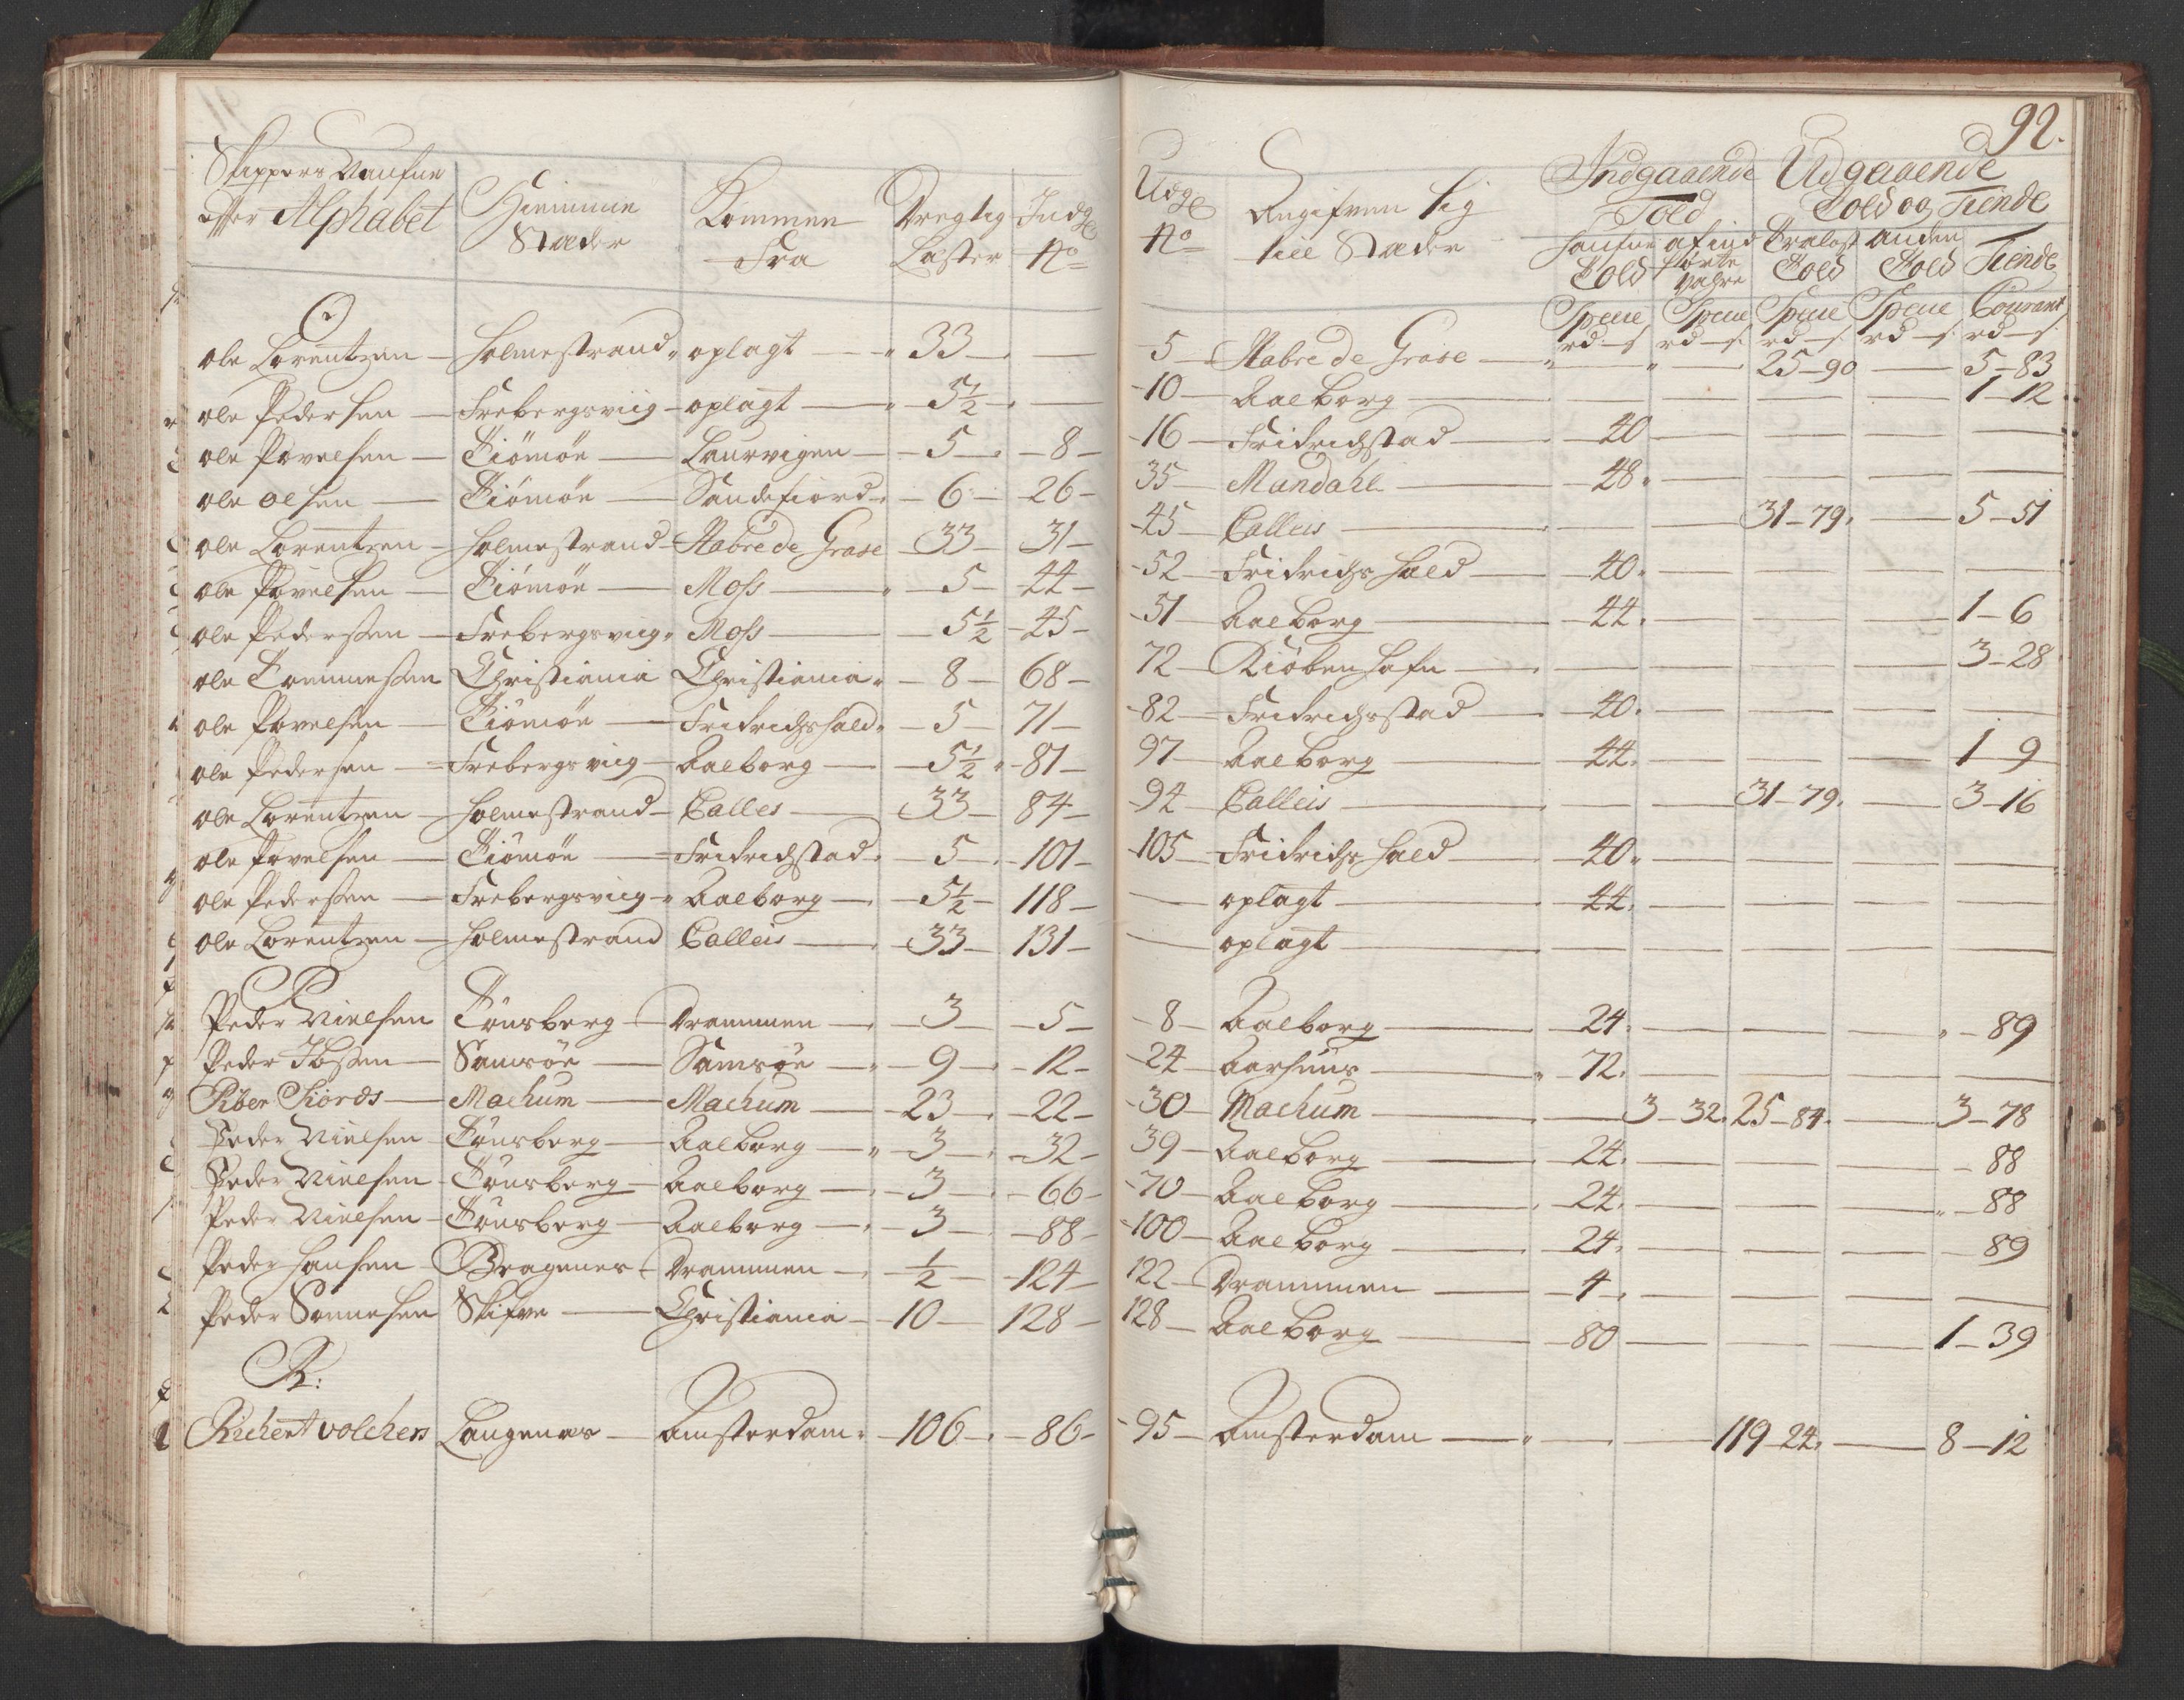 92.
Skippers Naufne
efter Alphabet
Hiemme
Stæder
Kommen
Fra
Dregtig
Læster
Indg
No
Udg
No
Angifven sig
till Stæder
Indgaaende
Told
Udgaaende
Told og Tiende
Haufne
Told
af ind
førte
Vahre
Trælast
Told
Anden
Told
Tiende
Specie Specie Specie Specie Courant
rd – s rd – s rd – s rd – s rd – s
O
Ole Lorentzen – Holmestrand – oplagt – 33 – – 5 – Habre de Grase – – – 25 – 90 – 5 – 83
Ole Pedersen – Frebergsviig – oplagt – 5½ – – 10 – Aalborg – – – – – 1 – 12
Ole Povelsen – Tiömöe – Laurvigen – 5 – 8 – 16 – Fridrichstad – 40 – – – –
Ole Olsen – Tiömöe – Sandefiord – 6 – 26 – 35 – Mandahl – 48 – – – –
Ole Lorentzen – Holmestrand – Habre de Grase – 33 – 31 – 45 – Calleis – – – 31 – 79 – 5 – 51
Ole Povelsen – Tiömöe – Moss – 5 – 44 – 52 – Fridrichshald – 40 – – – –
Ole Pedersen – Frebergsviig – Moss – 5½ – 45 – 51 – Aalborg – 44 – – – 1 – 6
Ole Tommesen Christiania Christiania – 8 – 68 – 72 – Kiöbenhafn – – – – 3 – 28
Ole Povelsen – Tiömöe – Fridrichshald – 5 – 71 – 82 – Fridrichsstad – 40 – – – –
Ole Pedersen – Frebergsviig – Aalborg – 5½ – 81 – 97 – Aalborg – 44 – – – 1 – 9
Ole Lorentzen – Holmestrand – Calles – 33 – 84 – 94 – Calleis – – – 31 – 79 – 3 – 16
Ole Povelsen – Tiömöe – Fridrichstad – 5 – 101 – 105 – Fridrichshald – 40 – – – –
Ole Pedersen – Frebergsviig – Aalborg – 5½ – 118 – – oplagt – 44 – – – –
Ole Lorentzen – Holmestrand Calleis – 33 – 131 – – oplagt – – – – –
P
Peder Nielsen Tönsberg – Drammen – 3 – 5 – 8 – Aalborg – 24 – – – – 89
Peder Ibsen – Samsöe – Samsöe – 9 – 12 – 24 – Aarhuus – 72 – – – –
Piber Tiords – Machum – Machum – 23 – 22 – 30 – Machum – – 3 – 32 25 – 84 – 3 – 78
Peder Nielsen – Tönsberg – Aalborg – 3 – 32 – 39 – Aalborg – 24 – – – – 88
Peder Nielsen – Tönsberg – Aalborg – 3 – 66 – 70 – Aalborg – 24 – – – – 88
Peder Nielsen – Tönsberg – Aalborg – 3 – 88 – 100 – Aalborg – 24 – – – – 89
Peder Hansen – Bragenes – Drammen – ½ – 124 – 122 – Drammen – 4 – – – –
Peder Sonnesen Skifve – Christiania – 10 – 128 – 128 – Aalborg – 80 – – – 1 – 39
R:
Richert Volchers Langenæs – Amsterdam – 106 – 86 – 95 – Amsterdam – – – 119 – 24 – 8 – 12